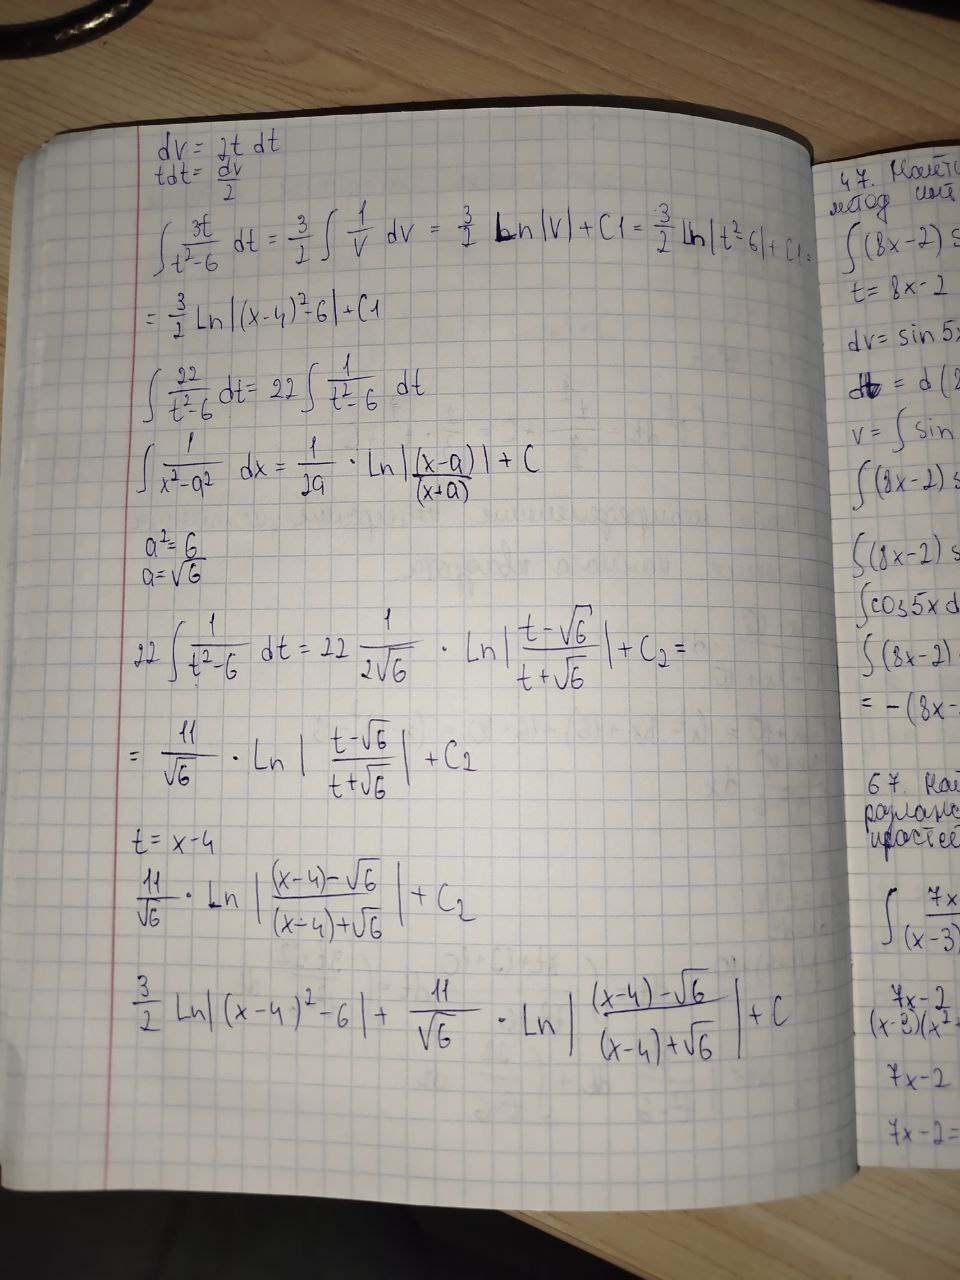 dv = 2t dt
tdt = dv/2
∫ 3t/(t²-6) dt = 3/2 ∫ 1/v dv = 3/2 Ln|v| + C1 = 3/2 Ln|t²-6| + C1 =
= 3/2 Ln|(x-4)²-6| + C1
∫ 22/(t²-6) dt = 22 ∫ 1/(t²-6) dt
∫ 1/(x²-a²) dx = 1/2a · Ln|(x-a)/(x+a)| + C
a² = 6
a = √6
22 ∫ 1/(t²-6) dt = 22 1/(2√6) · Ln|(t-√6)/(t+√6)| + C₂ =
= 11/√6 · Ln|(t-√6)/(t+√6)| + C₂
t = x-4
11/√6 · Ln|((x-4)-√6)/((x-4)+√6)| + C₂
3/2 Ln|(x-4)²-6| + 11/√6 · Ln|((x-4)-√6)/((x-4)+√6)| + C
47.
метод
∫(8x-2)
t = 8x-2
dv = sin 5x
= d(
v = ∫ sin
∫(8x-2)
∫(8x-2)
∫cos5x d
∫(8x-2)
= -(8x-
67.
∫ 7x/(x-3)
7x-2
(x-3)(x²+
7x-2
7x-2 =